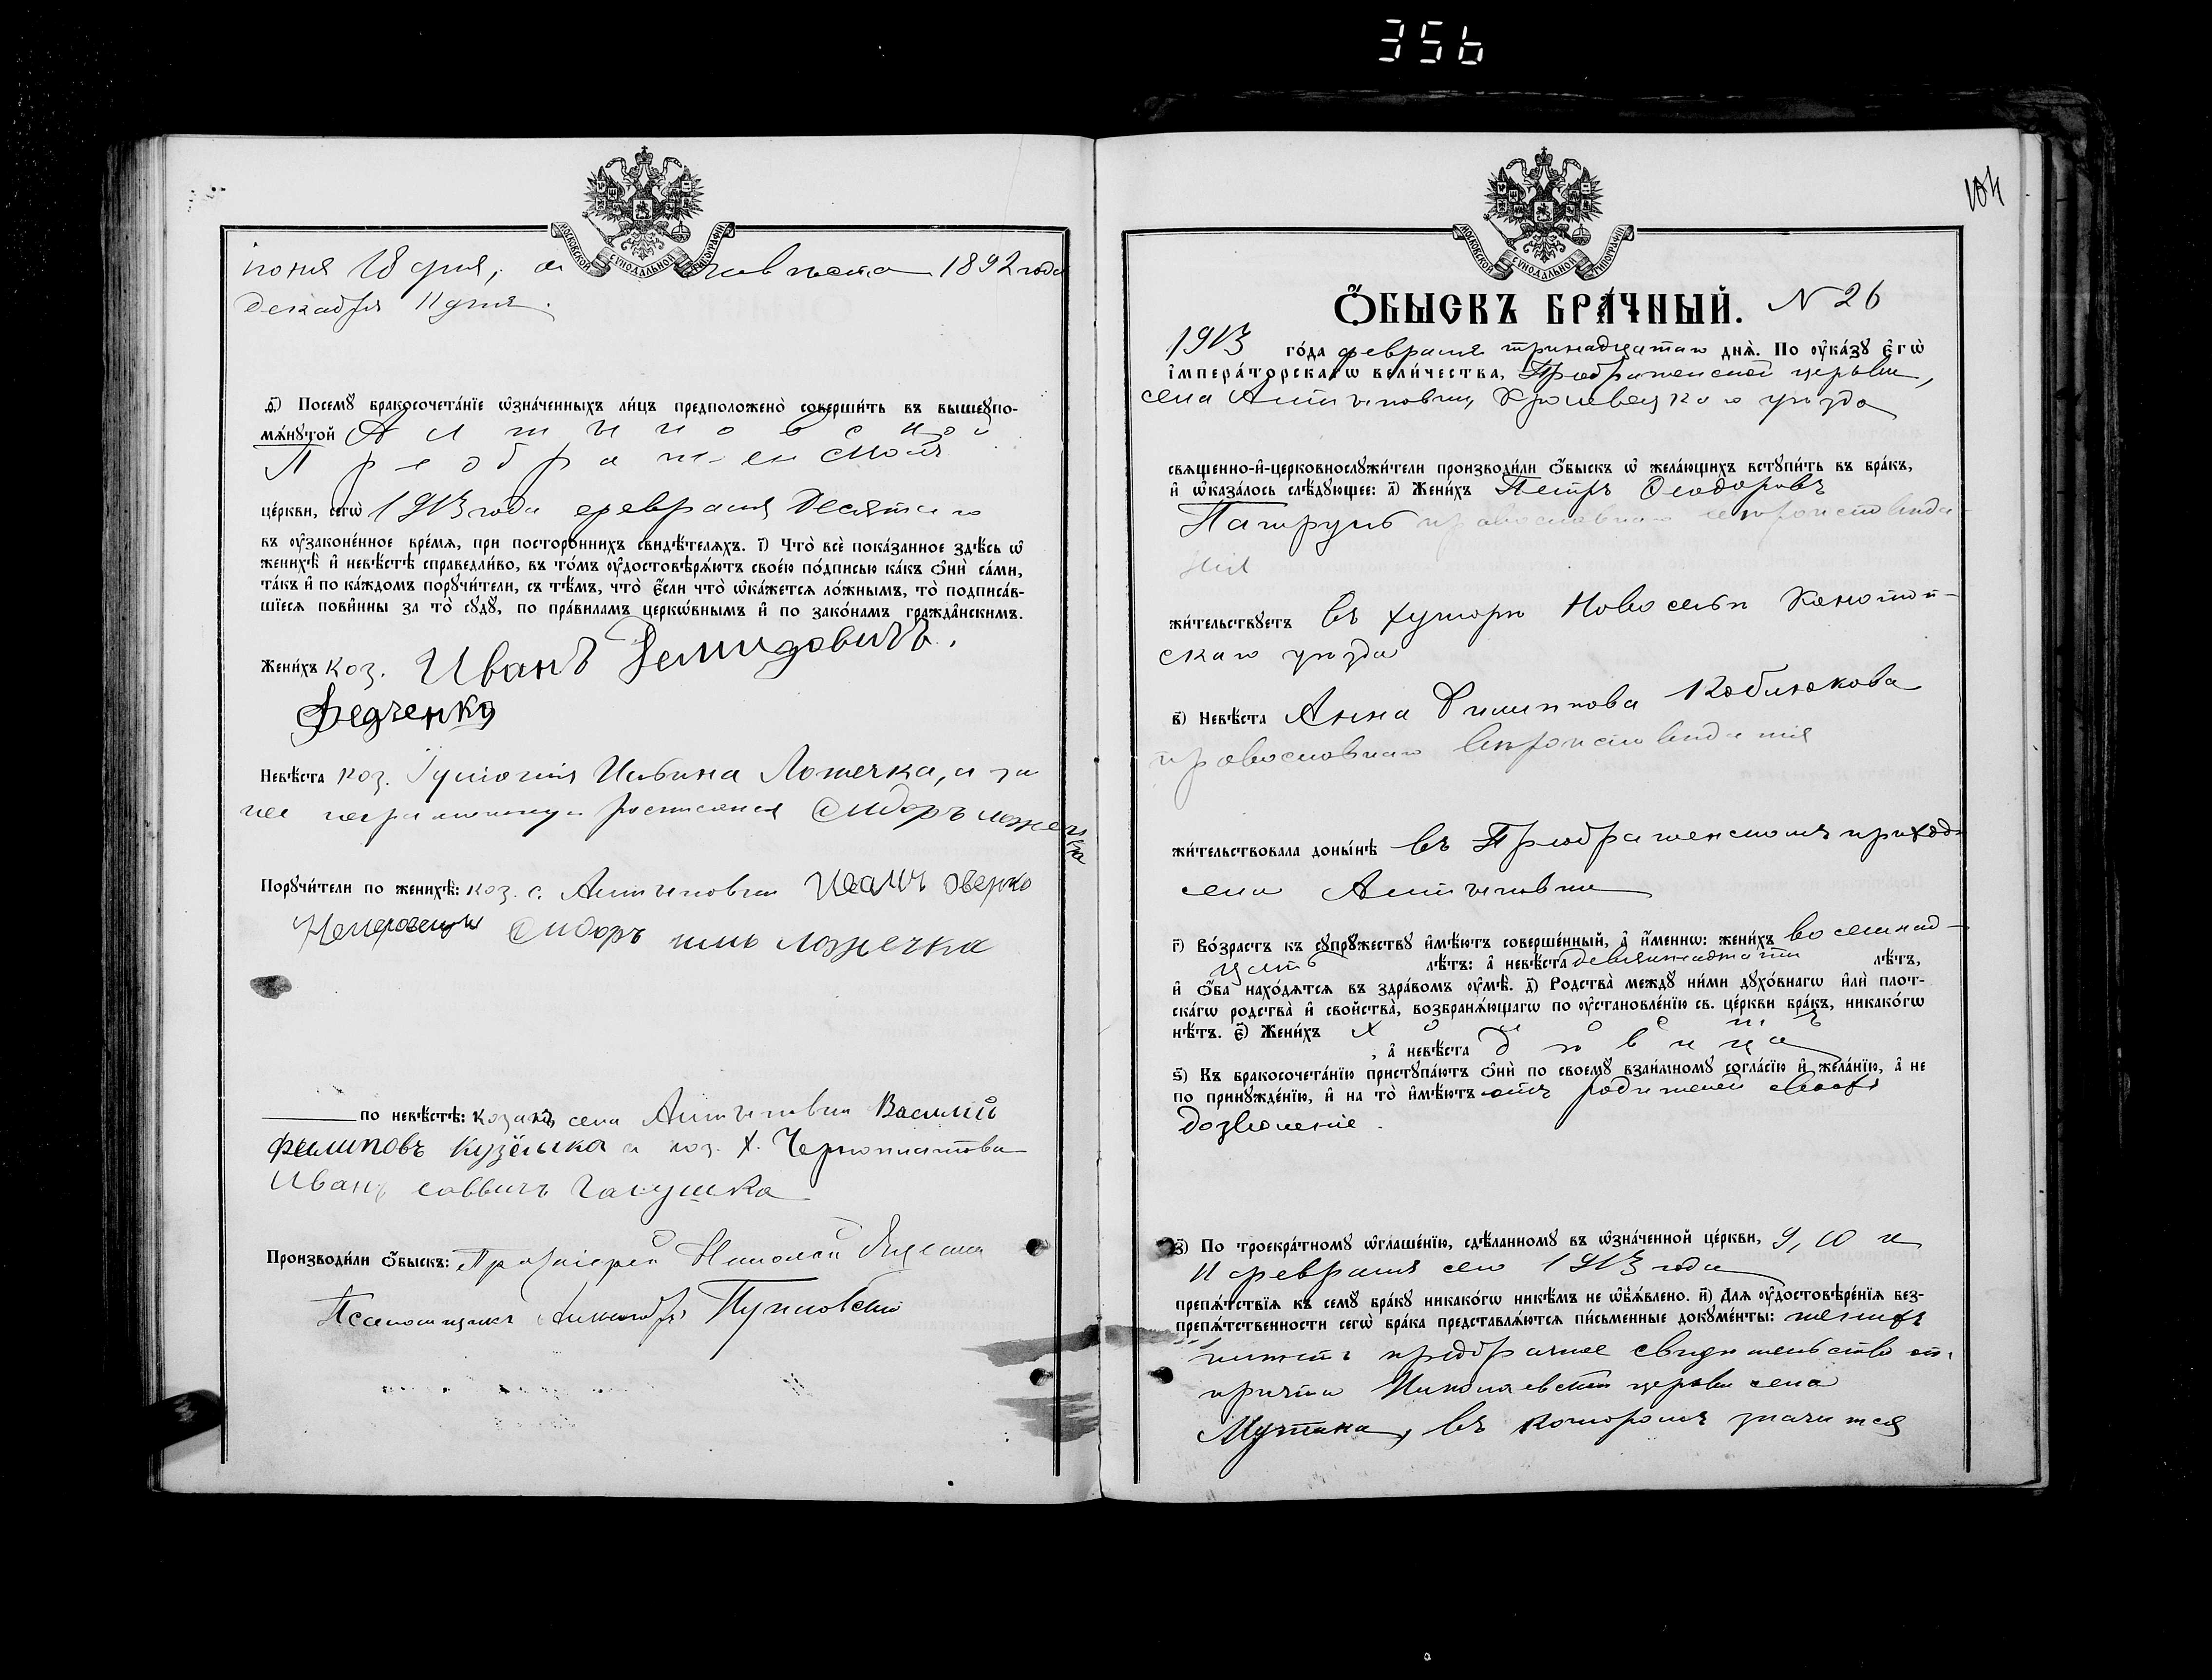 356
МОСКОВСКОЙ СУНОДАЛЬНОЙ ТИПОГРАФІИ
іюня 18 дня, а невѣста 1892 года
декабря 11 дня.
д҃) Посемꙋ бракосочета́нїе ѡ҆зна́ченныхъ ли́цъ предположено̀ соверши́ть въ вышеꙋпо-
мѧ́нꙋтой Алтыновской
Преображенской
це́ркви, сегѡ̀ 1913 года февраля десятаго
въ ᲂу҆законе́нное вре́мѧ, при посторо́ннихъ свидѣ́телѧхъ. і҃) Что̀ всѐ пока́занное здѣ́сь ѡ҆
женихѣ̀ и҆ невѣ́стѣ справедли́во, въ то́мъ ᲂу҆достовѣрѧ́ютъ свое́ю по́дписью ка́къ ѻ҆нѝ са́ми,
та́къ и҆ по ка́ждомъ порꙋчи́тели, съ тѣ́мъ, что̀ є҆́сли что̀ ѡ҆ка́жетсѧ ло́жнымъ, то̀ подписа́в-
шїесѧ пови́нны за то̀ сꙋдꙋ̀, по пра́виламъ церкѡ́внымъ и҆ по зако́намъ гражда́нскимъ.
Жени́хъ коз. Иванъ Демидовичъ
Федченко
Невѣ́ста коз. Гликерія Ильина Ложечка, а за
нее неграмотную росписался Сидоръ Ложечка
Порꙋчи́тели по женихѣ̀: коз. с. Алтыновки Иванъ
Сидоръ Ложечка
по невѣ́стѣ: козакъ села Алтыновки Василій
Филиповъ Кузёмка и коз. х. Черноплатова
Иванъ Саввичъ Галушка
Производи́ли ѻ҆́быскъ: Протоіерей Николай
Псаломщикъ Александръ
104
МОСКОВСКОЙ СУНОДАЛЬНОЙ ТИПОГРАФІИ
Ѻ҆БЫСКЪ БРА́ЧНЫЙ. N 26
1913 го́да февраля тринадцатаго днѧ̀. По ᲂу҆ка́зꙋ є҆гѡ̀
і҆мпера́торскагѡ вели́чества, Преображенской церкви,
села Алтыновки, Кролевецкаго уѣзда
свѧщенно-и҆-церковнослꙋжи́тели производи́ли ѻ҆́быскъ ѡ҆ жела́ющихъ встꙋпи́ть въ бра́къ,
и҆ ѡ҆каза́лось слѣ́дꙋющее: а҃) Жени́хъ Петръ Ѳеодоровъ
Патруль православнаго вѣроисповѣда-
нія
жи́тельствꙋетъ въ хуторѣ Новосельи Конотоп-
скаго уѣзда
в҃) Невѣ́ста Анна Филиппова Коблюкова
православнаго вѣроисповѣданія
жи́тельствовала доны́нѣ въ Преображенскомъ приходѣ
села Алтыновки
г҃) Во́зрастъ къ сꙋпрꙋ́жествꙋ и҆мѣ́ютъ соверше́нный, а҆ и҆́меннѡ: жени́хъ восемнад-
цать лѣ́тъ: а҆ невѣ́ста девятнадцати лѣ́тъ,
и҆ ѻ҆́ба нахо́дѧтсѧ въ здра́вомъ ᲂу҆мѣ̀. д҃) Родства̀ междꙋ̀ ни́ми дꙋхо́внагѡ и҆лѝ плот-
ска́гѡ родства̀ и҆ свойства̀, возбранѧ́ющагѡ по ᲂу҆становле́нїю св. це́ркви бра́къ, никако́гѡ
нѣ́тъ. є҃) Жени́хъ холостъ
, а҆ невѣ́ста дѣвица
ѕ҃) Къ бракосочета́нїю пристꙋпа́ютъ ѻ҆нѝ по своемꙋ̀ взаи́мномꙋ согла́сїю и҆ жела́нїю, а҆ не
по принꙋжде́нїю, и҆ на то̀ и҆мѣ́ютъ отъ родителей своихъ
дозволеніе.
з҃) По троекра́тномꙋ ѡ҆глаше́нїю, сдѣ́ланномꙋ въ ѡ҆зна́ченной це́ркви, 9, 10 и
11 февраля сего 1913 года
препѧ́тствїѧ къ семꙋ̀ бра́кꙋ никако́гѡ никѣ́мъ не ѡ҆б̾ѧ́влено. и҃) Длѧ ᲂу҆достовѣре́нїѧ без-
препѧ́тственности сегѡ̀ бра́ка представлѧ́ютсѧ пи́сьменные докꙋме́нты: женихъ
имѣетъ предбрачное свидѣтельство отъ
причта Николаевской церкви села
Мутина, въ которомъ значится